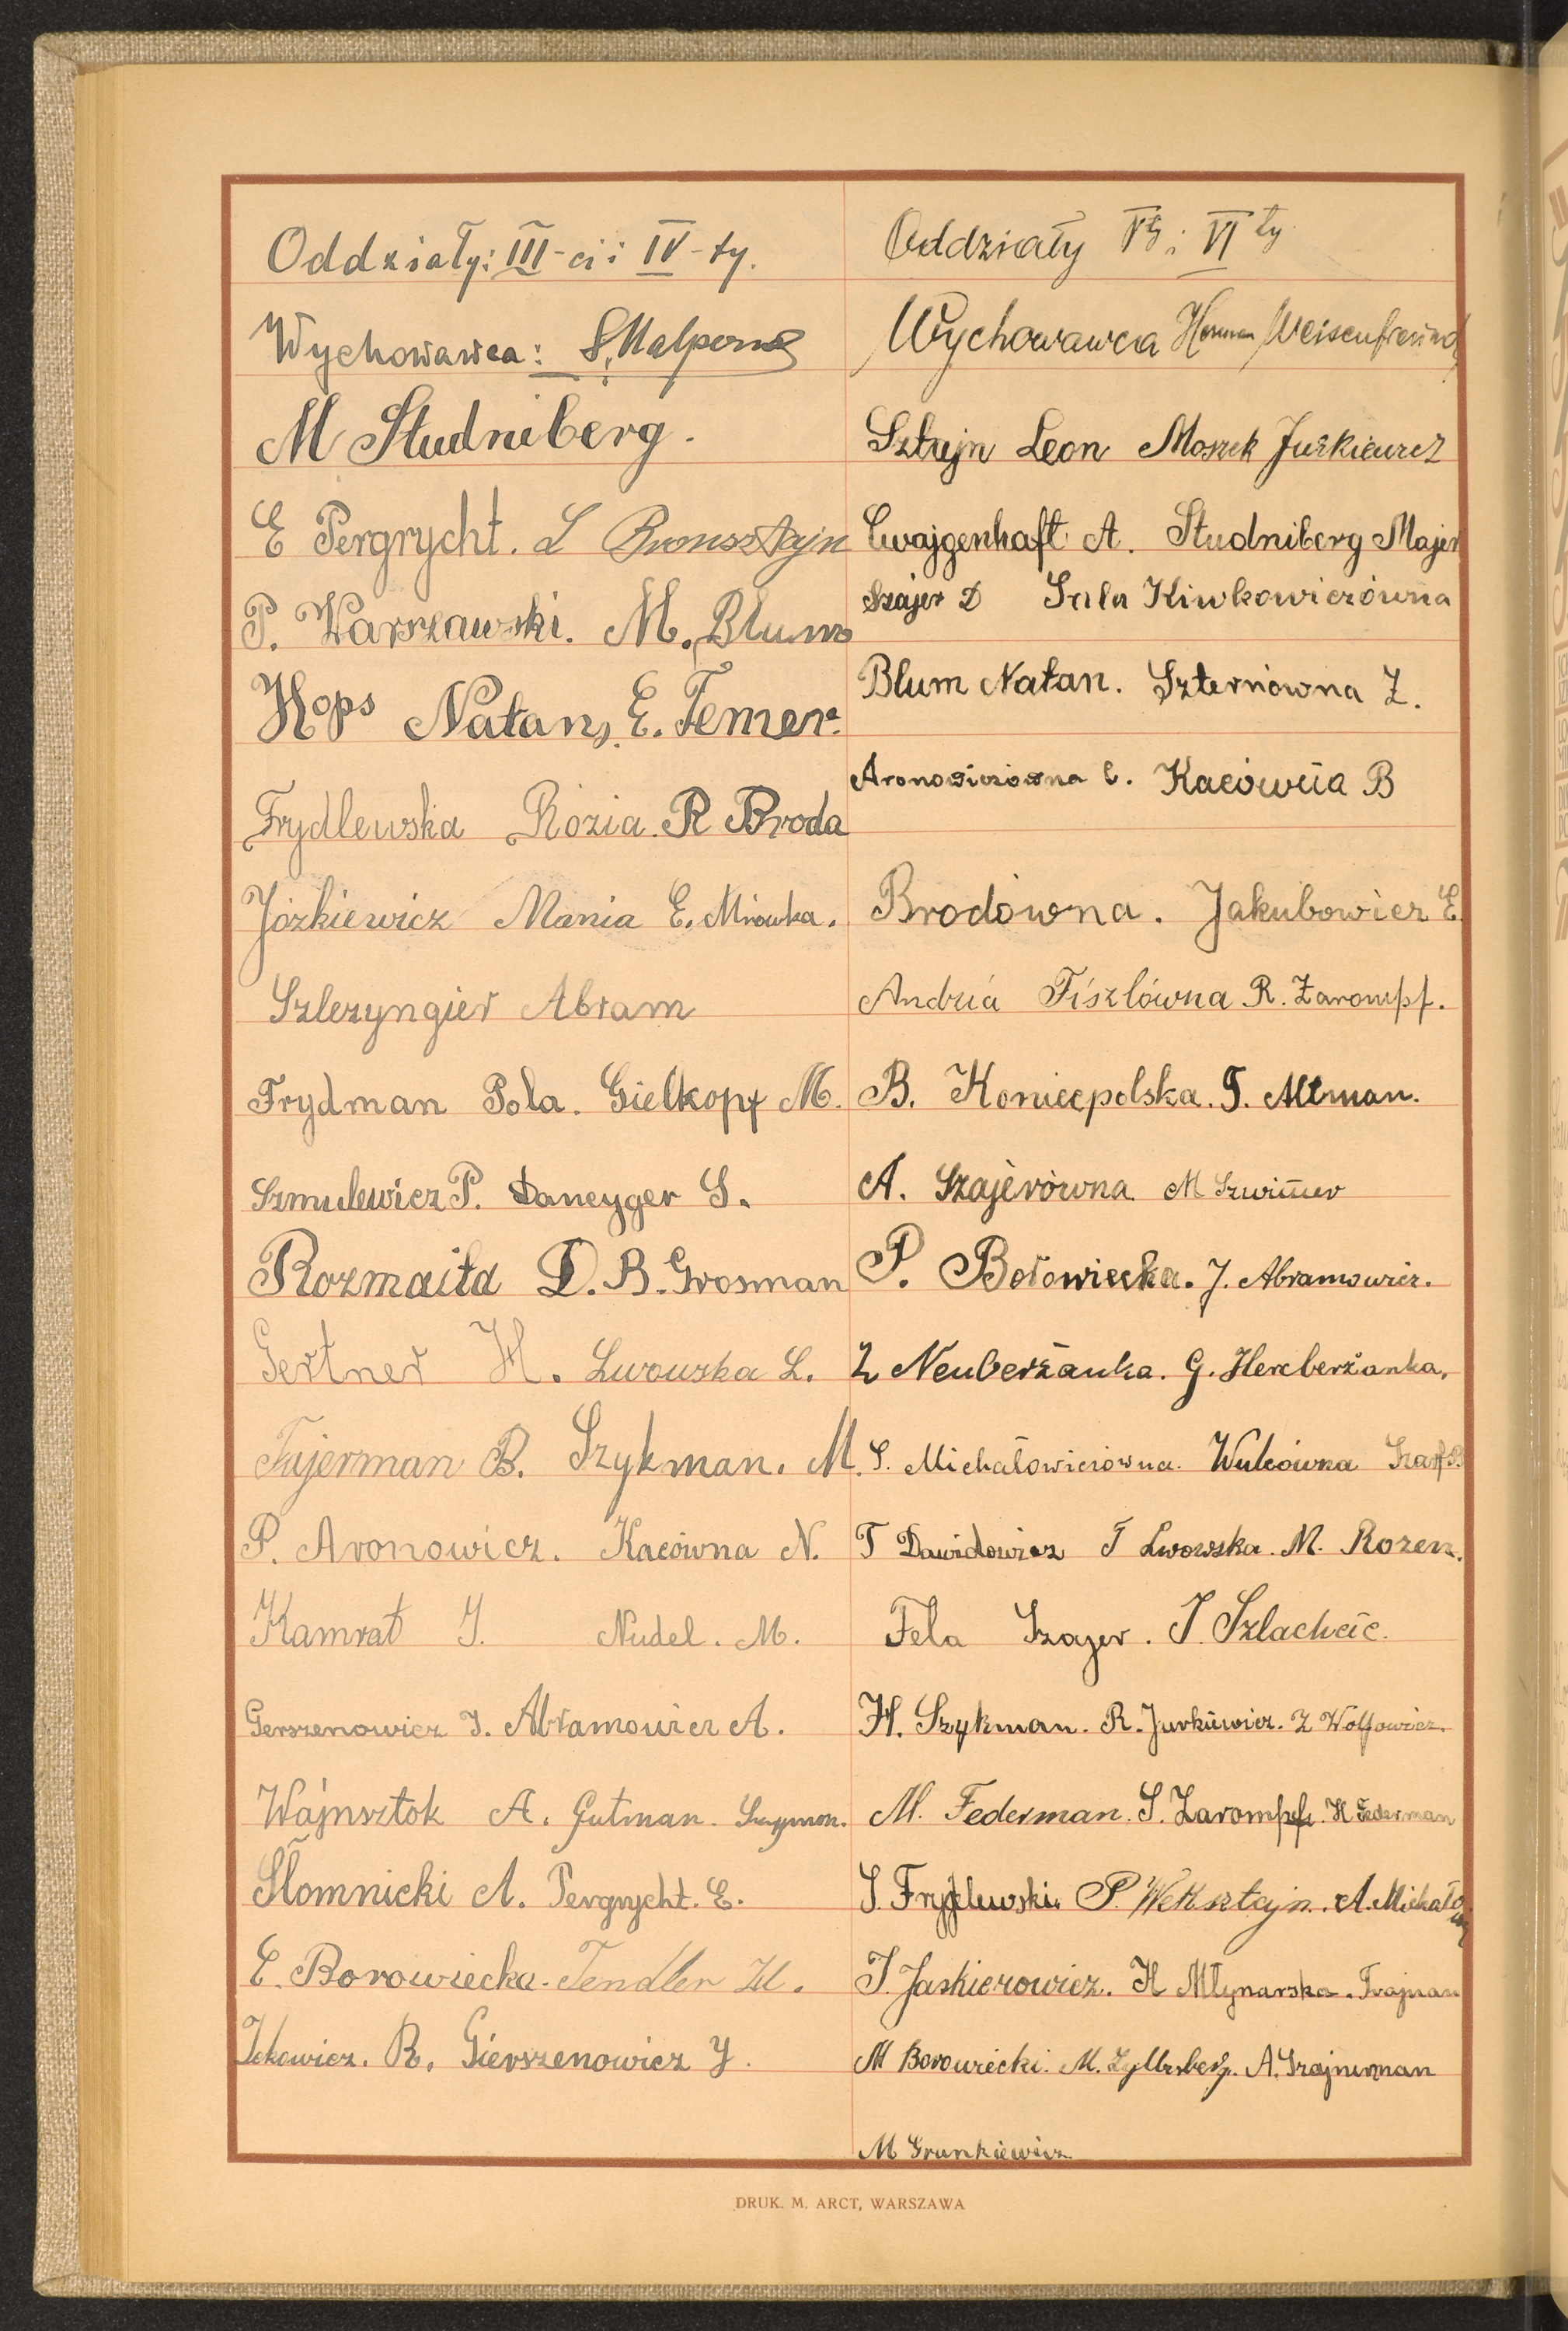 Oddziały: III-ci i IV-ty.
Wychowawca: S. Halpern
M Studniberg.
E Pergrycht. L Bronsztajn
P. Warszawski. M. Blum
Hops Natan, E. Temer.
Frydlewska Rózia. R Broda
Józkiewicz Mania E. Mrówka.
Szlezyngier Abram
Frydman Pola. Gielkopf M.
Szmulewicz P. Dancyger S.
Rozmaita D. B. Grosman
Gertner H. Lwowska L.
Fajerman B. Szykman. M.
P. Aronowicz. Kacówna N.
Kamrat J. Nudel. M.
Gerszenowicz J. Abramowicz A.
Wajnsztok A. Gutman. Szymon.
Słomnicki A. Pergrycht. E.
E. Borowiecka. Tendler M.
Ickowicz. R. Gierszenowicz J.
Oddziały Vty i VI ty
Wychowawca Herman Weissenfreund
Sztajn Leon Moszek Jurkiewicz
Cwajgenhaft A. Studniberg Majer
Szajer D Sala Kiwkowiczówna
Blum Natan. Szternówna Z.
Aronowiczówna C. Kacówna B
Brodówna. Jakubowicz E.
Andzia Fiszlówna R. Zarompf.
B. Koniecpolska. G. Altman.
A. Szajerówna M Szwimer
P. Borowiecka. J. Abramowicz.
Z Neuberżanka. G. Hercberżanka.
S. Michałowiczówna. Wulcówna Szarf B.
T Dawidowicz T Lwowska. M. Rozen.
Fela Szajer. J. Szlachcic.
H. Szykman. R. Jurkiewicz. Z Wolfowicz.
M. Federman. S. Zarompf. H Federman
S. Frydlewski. P. Weksztajn. A. Michałowicz
J. Jaskierowicz. H Młynarska. Frajman
M Borowiecki. M. Zylbrberg. A. Szajnerman
M Grunkiewicz
DRUK. M. ARCT, WARSZAWA